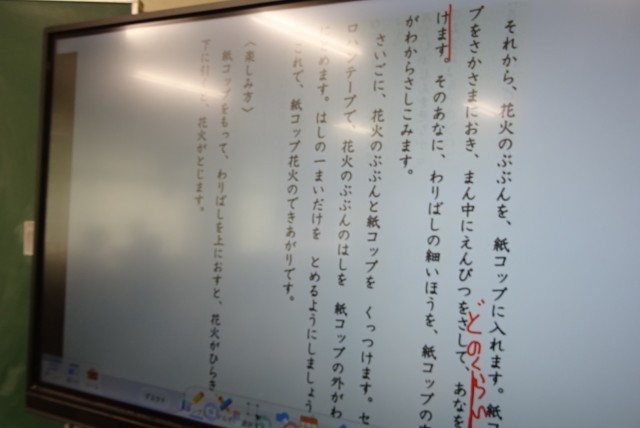 それから、花火のぶぶんを、紙コップに入れます。紙コ
プをさかさまにおき、まん中にえんぴつをさして、あなを
けます。そのあなに、わりばしの細いほうを、紙コップの
がわからさしこみます。
さいごに、花火のぶぶんと紙コップを くっつけます。セ
ロハンテープで、花火のぶぶんのはしを 紙コップの外がわ
とめます。はしの一まいだけを とめるようにしましょう
これで、紙コップ花火のできあがりです。
〈楽しみ方〉
紙コップをもって、わりばしを上におすと、花火がひらき
下に引くと、花火がとじます。
どのくらい